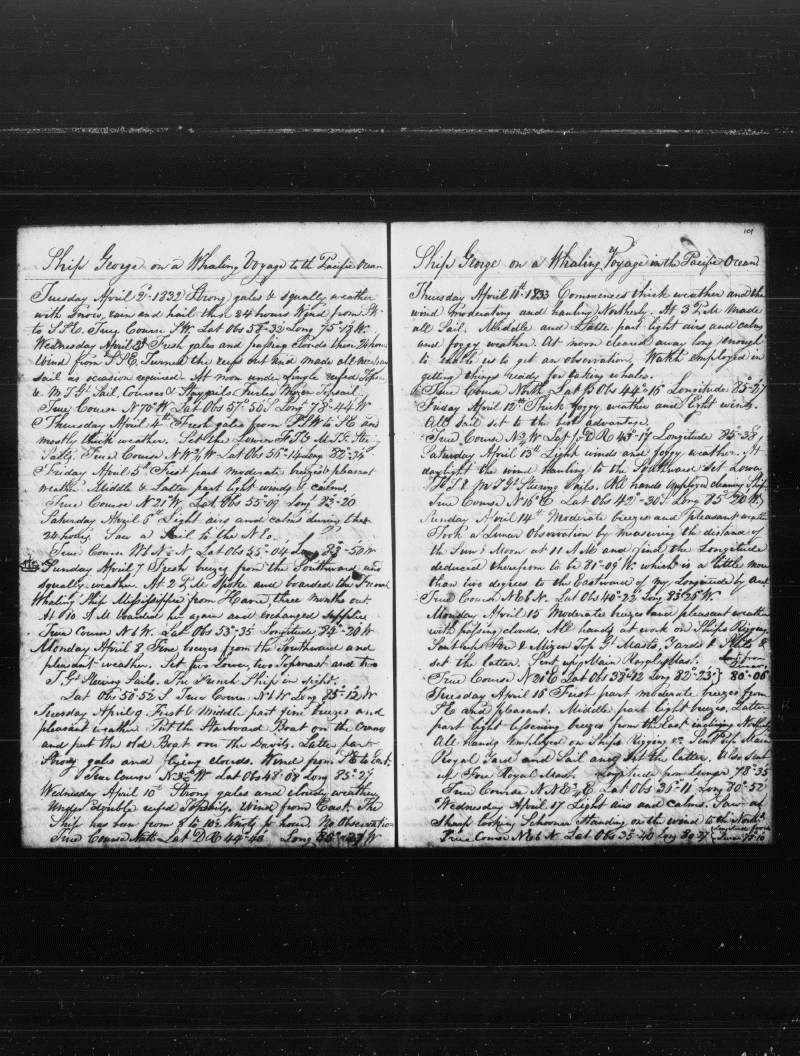 Ship George on a Whaling Voyage to the Pacific Ocean
Tuesday April 2d 1832 Strong gales & squally weather
with Snow, rain and hail this 24 hours Wind from SW
to SSE. True Course SW. Lat Obs 58-33 Long 75-13 W.
Wednesday April 3d Fresh gales and passing clouds these 24 hours
Wind from SSE. Turned the reefs out and made all necessary
sail as ocasion required. At noon under Single reefed Topsails
& M T Gt Sail, Courses & Staysails Furled Mizen Topsail.
True Course N 70 W Lat Obs 57-50 S Long 78-44 W
Thursday April 4th Fresh gales from SSW to SE and
mostly thick weather. Set the Lower F T & M T Steering
Sails. True Course NW ½ W Lat Obs 56-14 Long 82-34
Friday April 5th First part moderate breezes & pleasant
weather Middle & Latter part light winds & calms,
True Course N 21 W Lat Obs 55-09 Long 83-20
Saturday April 6th Light airs and calms during the
24 hours. Saw a Sail to the N.E.
True Course W ½ N Lat Obs 55-04 Long 83-50 W
Sunday April 7 Fresh breezes from the Southward and
squally weather. At 2 P.M Spoke and boarded the French
Whaling Ship Mississippi from Havre three months out.
At 10 A M boarded her again and exchanged supplies
True Course N b W. Lat Obs 53-35 Longitude 84-20 W
Monday April 8 Fine breezes from the Southward and
pleasant weather. Set two Lower, two Topmast and two
T Gt Steering Sails. The French Ship in sight.
Lat Obs 50-52 S True Course N b W Long 85-12 W
Tuesday April 9 First & Middle part fine breezes and
pleasant weather Put the Starboard Boat on the Cranes
and put the old Boat over the Davits. Latter part
Strong gales and flying clouds. Wind from SE to East.
True Course N 3 W Lat Obs 48-08 Long 85-27
Wednesday April 10th Strong gales and cloudy weather
Under double reefed Topsails Wind from East. The
Ship has been from 8 to 10½ Knots pr hour. No Observation
True Course North Lat D R 44-45 Long 85-27 W
101
Ship George on a Whaling Voyage in the Pacific Ocean
Thursday April 11th 1833 Commences thick weather and the
wind moderating and hauling Northerly. At 3 P.M made
all Sail. Middle and Latter part light airs and calms
and foggy weather. At noon cleared away long enough
to enable us to get an observation. Watch employed in
getting things ready for taking whales.
True Course North Lat p Obs 44-16 Longitude 85-27
Friday April 12th Thick foggy weather and light winds.
All Sail set to the best advantage.
True Course N ½ W Lat p D R 43-17 Longitude 85-38
Saturday April 13th Light winds and foggy weather. At
daylight the wind hauling to the Southward set Lower
F T & M T Gt Steering Sails. All hands employed cleaning Ship
True Course N 16 E Lat Obs 42-30 S Long 85-20 W
Sunday April 14th Moderate breezes and Pleasant weather
Took a Lunar Observation by measuring the distance of
the Sun & Moon at 11 A M and find the Longitude
deduced therefrom to be 81-09 W which is a little more
than two degrees to the Eastward of my Longitude by Act
True Course N E b N. Lat Obs 40-23 Long 83-25 W
Monday April 15 Moderate breezes and pleasant weather
with passing clouds. All hands at work on Ships Rigging
Sent up Fore & Mizen Top Gt Masts, Yards & Sails &
set the latter. Sent up Main Royal Mast.
True Course N 20 E Lat Obs 38-12 Long 82-23 } 80-06
Tuesday April 16 First part moderate breezes from
SE and pleasant. Middle part light breezes. Latter
part light lessening breezes from the East inclining Northerly
All Hands employed on Ships Rigging &c Sent up Main
Royal Yard and Sail and Set the latter. Also sent
up Fore Royal Mast. Longitude from Lunar 78-35
True Course N N E ½ E Lat Obs 36-11 Long 80-52
Wednesday April 17 Light airs and calms. Saw a
Sharp looking Schooner Standing on the wind to the North
True Course N b N Lat Obs 35-40 Long 80-27